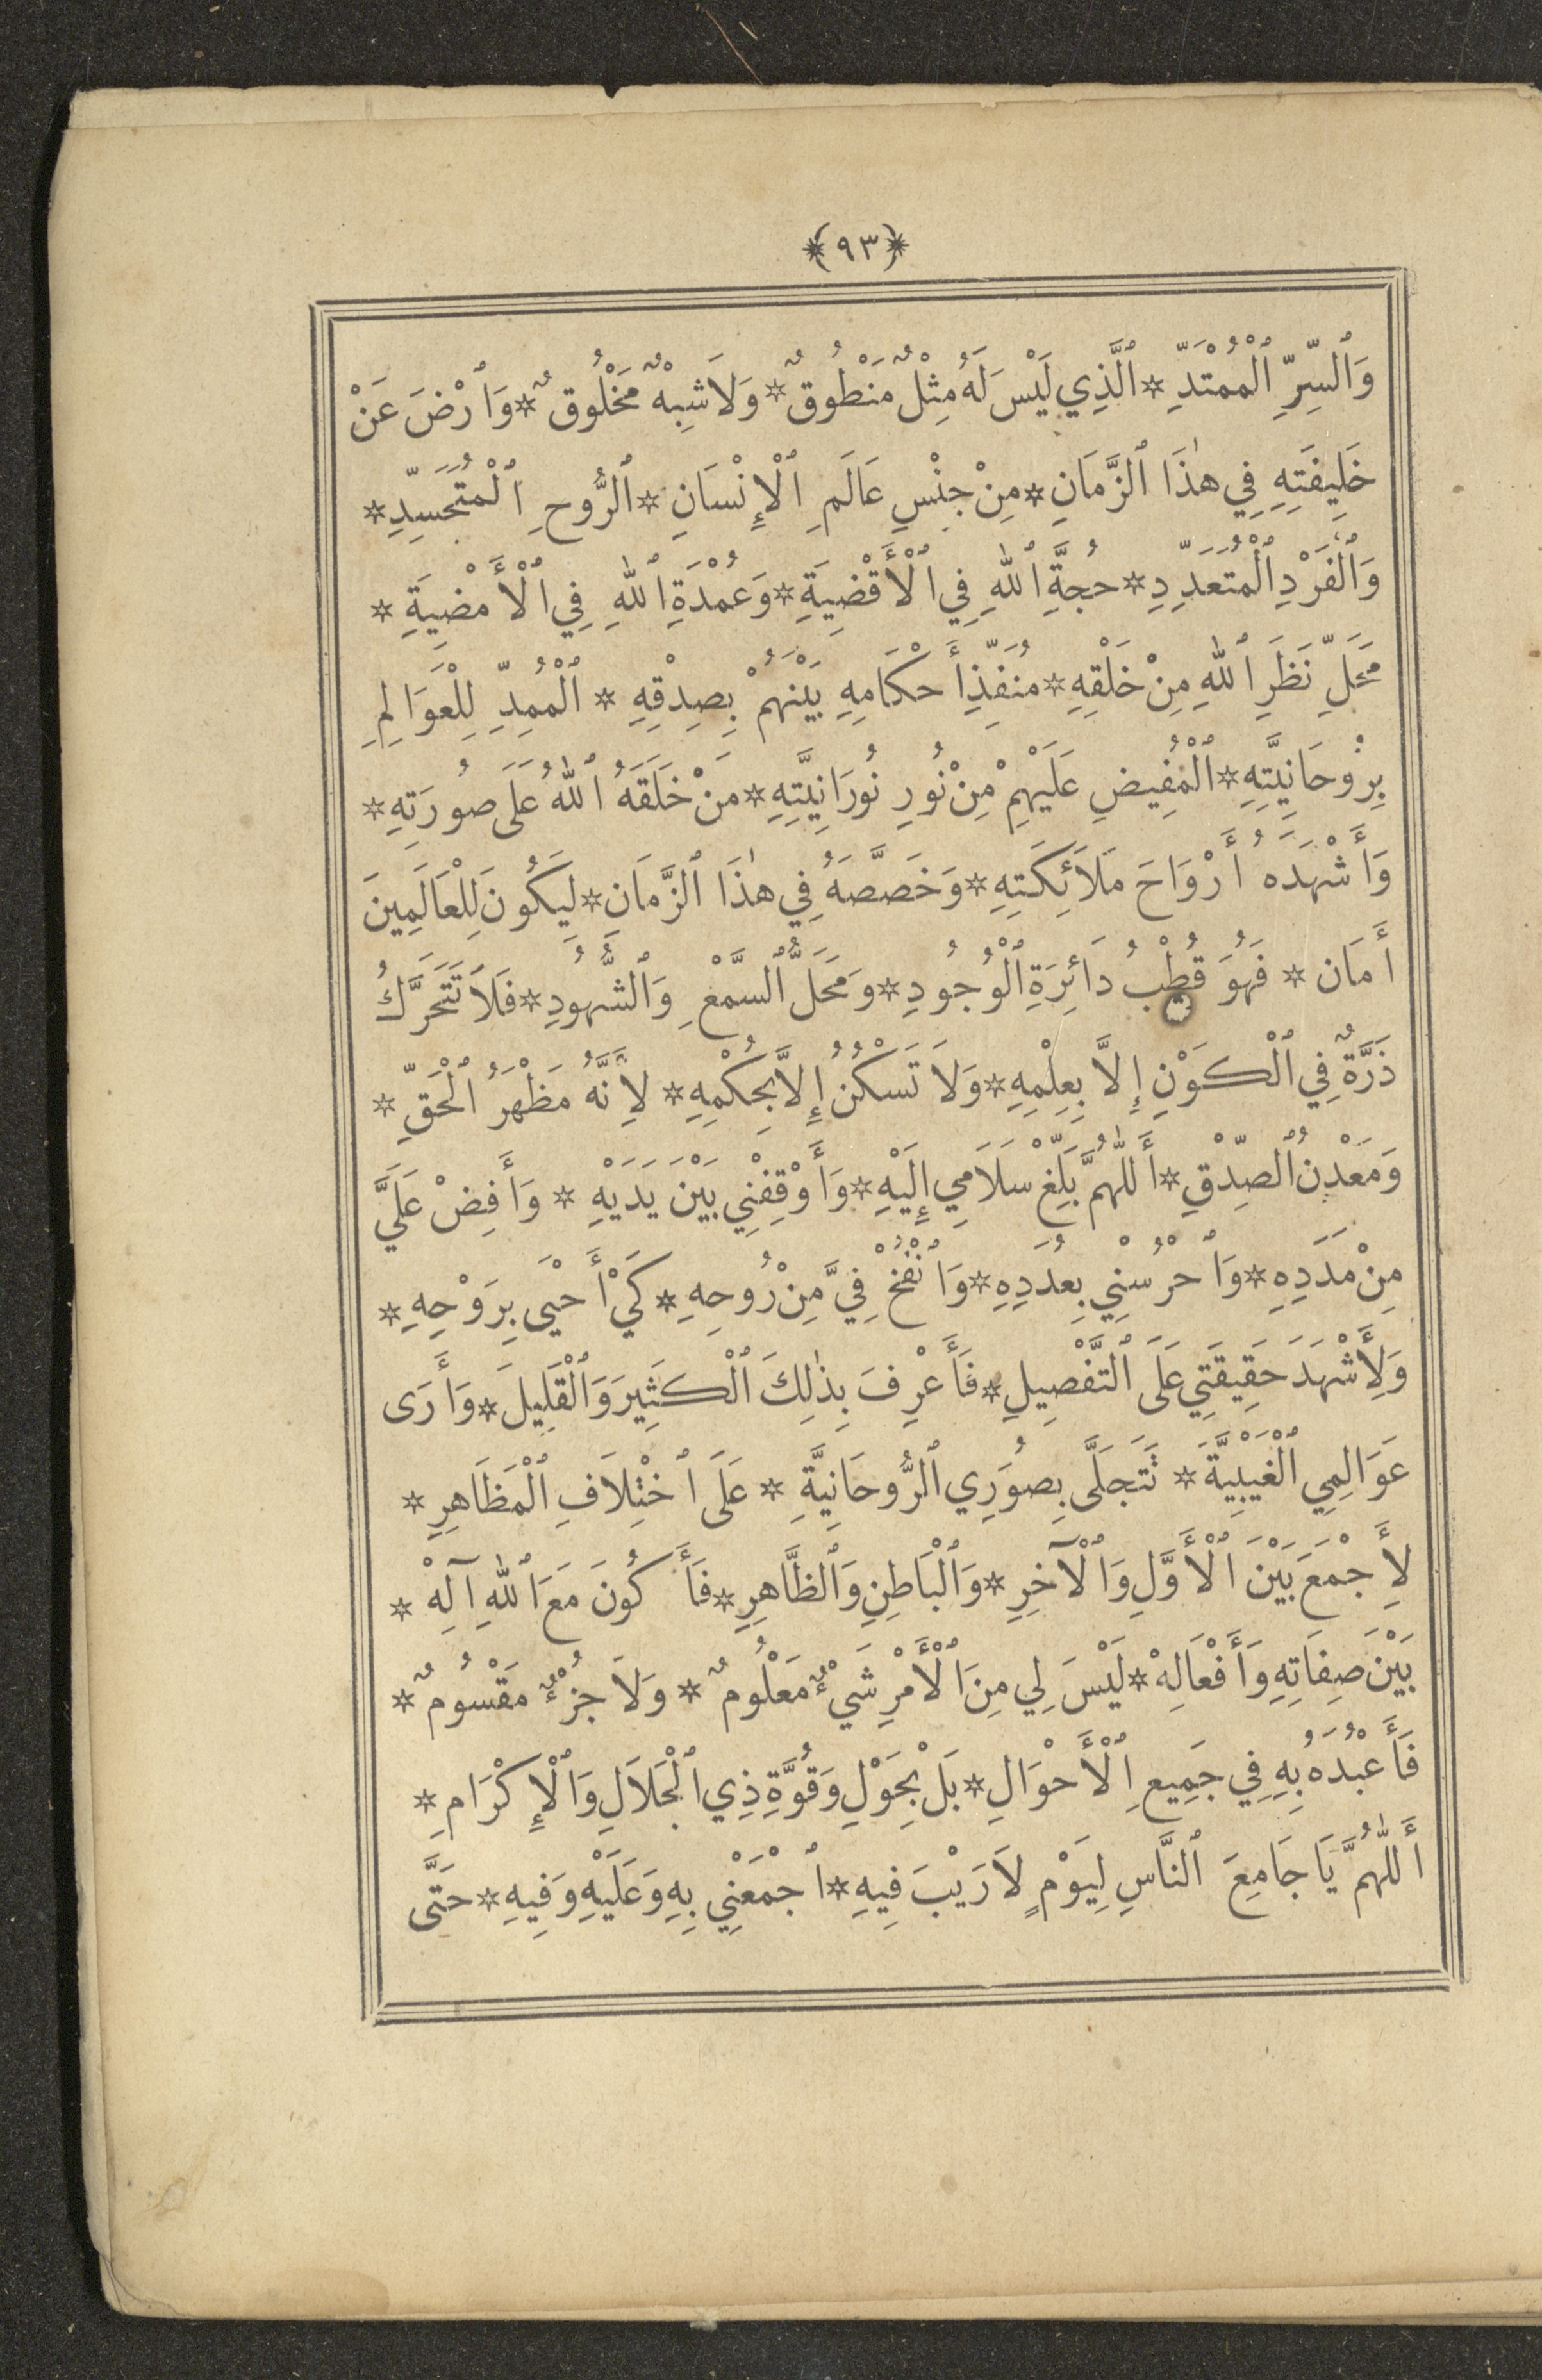 ﴿٩٣﴾
وَٱلسِّرِّ ٱلْمُمْتَدِّ * ٱلَّذِي لَيْسَ لَهُ مِثْلٌ مَنْطُوقٌ * وَلَا شِبْهٌ مَخْلُوقٌ * وَٱرْضَ عَنْ
خَلِيفَتِهِ فِي هٰذَا ٱلزَّمَانِ * مِنْ جِنْسِ عَالَمِ ٱلْإِنْسَانِ * ٱلرُّوحِ ٱلْمُتَجَسِّدِ *
وَٱلْفَرْدِ ٱلْمُتَعَدِّدِ * حُجَّةِ ٱللهِ فِي ٱلْأَقْضِيَةِ * وَعُمْدَةِ ٱللهِ فِي ٱلْأَمْضِيَةِ *
مَحَلِّ نَظَرِ ٱللهِ مِنْ خَلْقِهِ * مُنَفِّذِ أَحْكَامِهِ بَيْنَهُمْ بِصِدْقِهِ * ٱلْمُمِدِّ لِلْعَوَالِمِ
بِرُوحَانِيَّتِهِ * ٱلْمُفِيضِ عَلَيْهِمْ مِنْ نُورِ نُورَانِيَّتِهِ * مَنْ خَلَقَهُ ٱللهُ عَلَى صُورَتِهِ *
وَأَشْهَدَهُ أَرْوَاحَ مَلَائِكَتِهِ * وَخَصَّصَهُ فِي هٰذَا ٱلزَّمَانِ * لِيَكُونَ لِلْعَالَمِينَ
أَمَان * فَهُوَ قُطْبُ دَائِرَةِ ٱلْوُجُودِ * وَمَحَلُّ ٱلسَّمْعِ وَٱلشُّهُودِ * فَلَا تَتَحَرَّكُ
ذَرَّةٌ فِي ٱلْكَوْنِ إِلَّا بِعِلْمِهِ * وَلَا تَسْكُنُ إِلَّا بِحُكْمِهِ * لِأَنَّهُ مَظْهَرُ ٱلْحَقِّ *
وَمَعْدِنُ ٱلصِّدْقِ * أَللّٰهُمَّ بَلِّغْ سَلَامِي إِلَيْهِ * وَأَوْقِفْنِي بَيْنَ يَدَيْهِ * وَأَفِضْ عَلَيَّ
مِنْ مَدَدِهِ * وَٱحْرُسْنِي بِعُدَدِهِ * وَٱنْفُخْ فِيَّ مِنْ رُوحِهِ * كَيْ أَحْيَى بِرَوْحِهِ *
وَلِأَشْهَدَ حَقِيقَتِي عَلَى ٱلتَّفْصِيلِ * فَأَعْرِفَ بِذٰلِكَ ٱلْكَثِيرَ وَٱلْقَلِيلَ * وَأَرَى
عَوَالِمِي ٱلْغَيْبِيَّةَ * تَتَجَلَّى بِصُوَرِي ٱلرُّوحَانِيَّةِ * عَلَى ٱخْتِلَافِ ٱلْمَظَاهِرِ *
لِأَجْمَعَ بَيْنَ ٱلْأَوَّلِ وَٱلْآخِرِ * وَٱلْبَاطِنِ وَٱلظَّاهِرِ * فَأَكُونَ مَعَ ٱللهِ آلِهْ *
بَيْنَ صِفَاتِهِ وَأَفْعَالِهْ * لَيْسَ لِي مِنَ ٱلْأَمْرِ شَيْءٌ مَعْلُومٌ * وَلَا جُزْءٌ مَقْسُومٌ *
فَأَعْبُدَهُ بِهِ فِي جَمِيعِ ٱلْأَحْوَالِ * بَلْ بِحَوْلِ وَقُوَّةِ ذِي ٱلْجَلَالِ وَٱلْإِكْرَامِ *
أَللّٰهُمَّ يَا جَامِعَ ٱلنَّاسِ لِيَوْمٍ لَا رَيْبَ فِيهِ * ٱجْمَعْنِي بِهِ وَعَلَيْهِ وَفِيهِ * حَتَّى